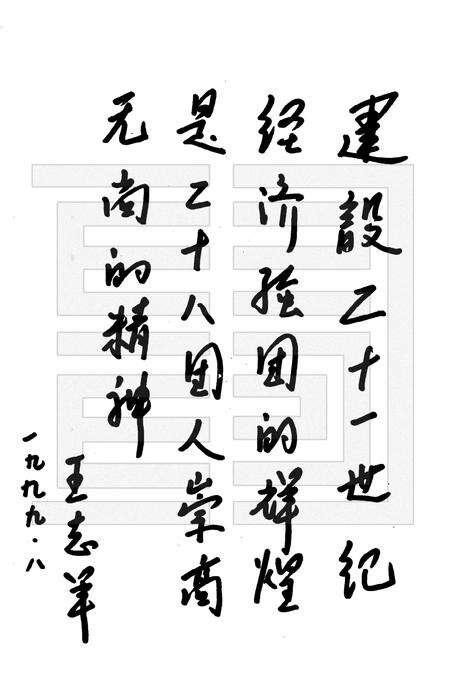 建設二十一世纪
经济强团的辉煌
是二十八团人崇高
无尚的精神
王志
一九九九·八